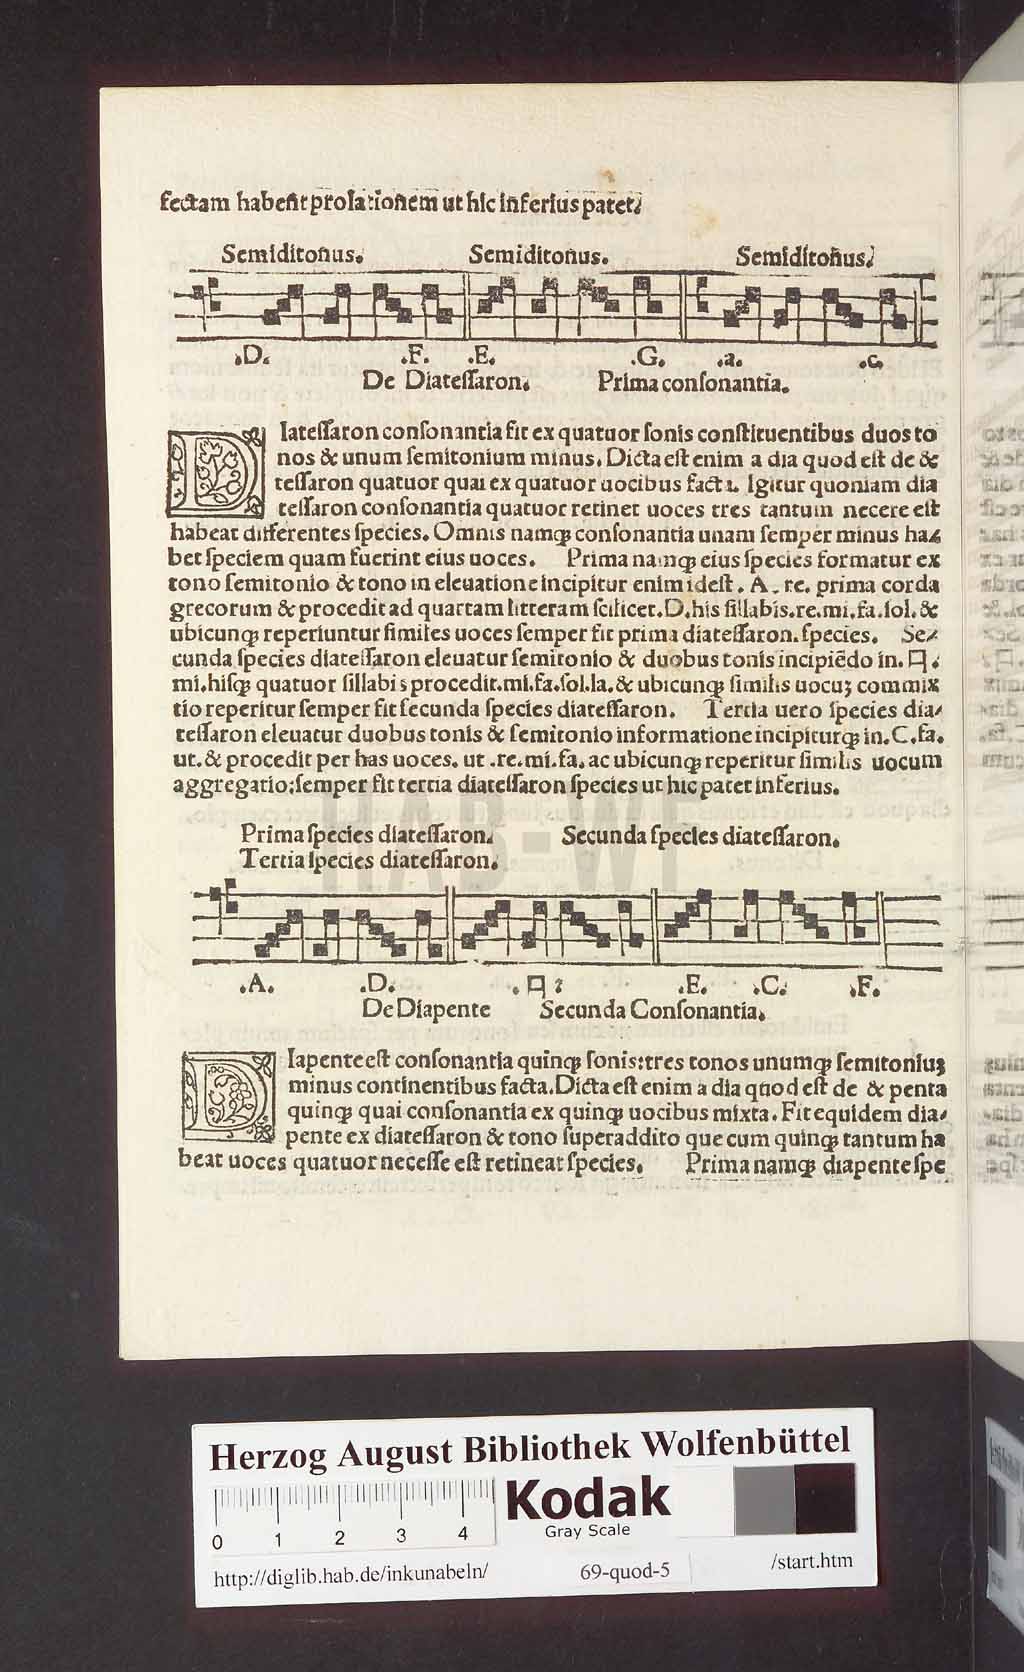 fectam habeñt prolationem ut hic inferius patet.
Semiditoñus. Semiditoñus. Semiditoñus.
.D. .F. .E. .G. .a. .c.
De Diateſſaron. Prima conſonantia.
DIateſſaron conſonantia fit ex quatuor ſonis conſtituentibus duos to
nos & unum ſemitonium minus. Dicta eſt enim a dia quod eſt de &
teſſaron quatuor quaſi ex quatuor uocibus facta. Igitur quoniam dia
teſſaron conſonantia quatuor retinet uoces tres tantum neceſe eſt
habeat differentes ſpecies. Omnis namq; conſonantia unam ſemper minus ha⸗
bet ſpeciem quam fuerint eius uoces. Prima namq; eius ſpecies formatur ex
tono ſemitonio & tono in eleuatione incipitur enim ideſt. A. re. prima corda
grecorum & procedit ad quartam litteram ſcilicet. D. his ſillabis. re. mi. fa. ſol. &
ubicunq; reperiuntur ſimiles uoces ſemper fit prima diateſſaron. ſpecies. Se⸗
cunda ſpecies diateſſaron eleuatur ſemitonio & duobus tonis incipiēdo in. ♮.
mi. hiſq; quatuor ſillabis procedit. mi. fa. ſol. la. & ubicunq; ſimilis uocuꝫ commix
tio reperitur ſemper fit ſecunda ſpecies diateſſaron. Tertia uero ſpecies dia⸗
teſſaron eleuatur duobus tonis & ſemitonio informatione incipiturq; in. C. fa.
ut. & procedit per has uoces. ut. re. mi. fa. ac ubicunq; reperitur ſimilis uocum
aggregatio: ſemper fit tertia diateſſaron ſpecies ut hic patet inferius.
Prima ſpecies diateſſaron. Secunda ſpecies diateſſaron.
Tertia ſpecies diateſſaron.
.A. .D. . ♮ . .E. .C. .F.
De Diapente Secunda Conſonantia.
DIapente eſt conſonantia quinq; ſonis: tres tonos unumq; ſemitoniuꝫ
minus continentibus facta. Dicta eſt enim a dia quod eſt de & penta
quinq; quaſi conſonantia ex quinq; uocibus mixta. Fit equidem dia⸗
pente ex diateſſaron & tono ſuperaddito que cum quinq; tantum ha
beat uoces quatuor neceſſe eſt retineat ſpecies. Prima namq; diapente ſpe
HAB-WF
Herzog August Bibliothek Wolfenbüttel
0 1 2 3 4 Kodak
Gray Scale
http://diglib.hab.de/inkunabeln/ 69-quod-5 /start.htm